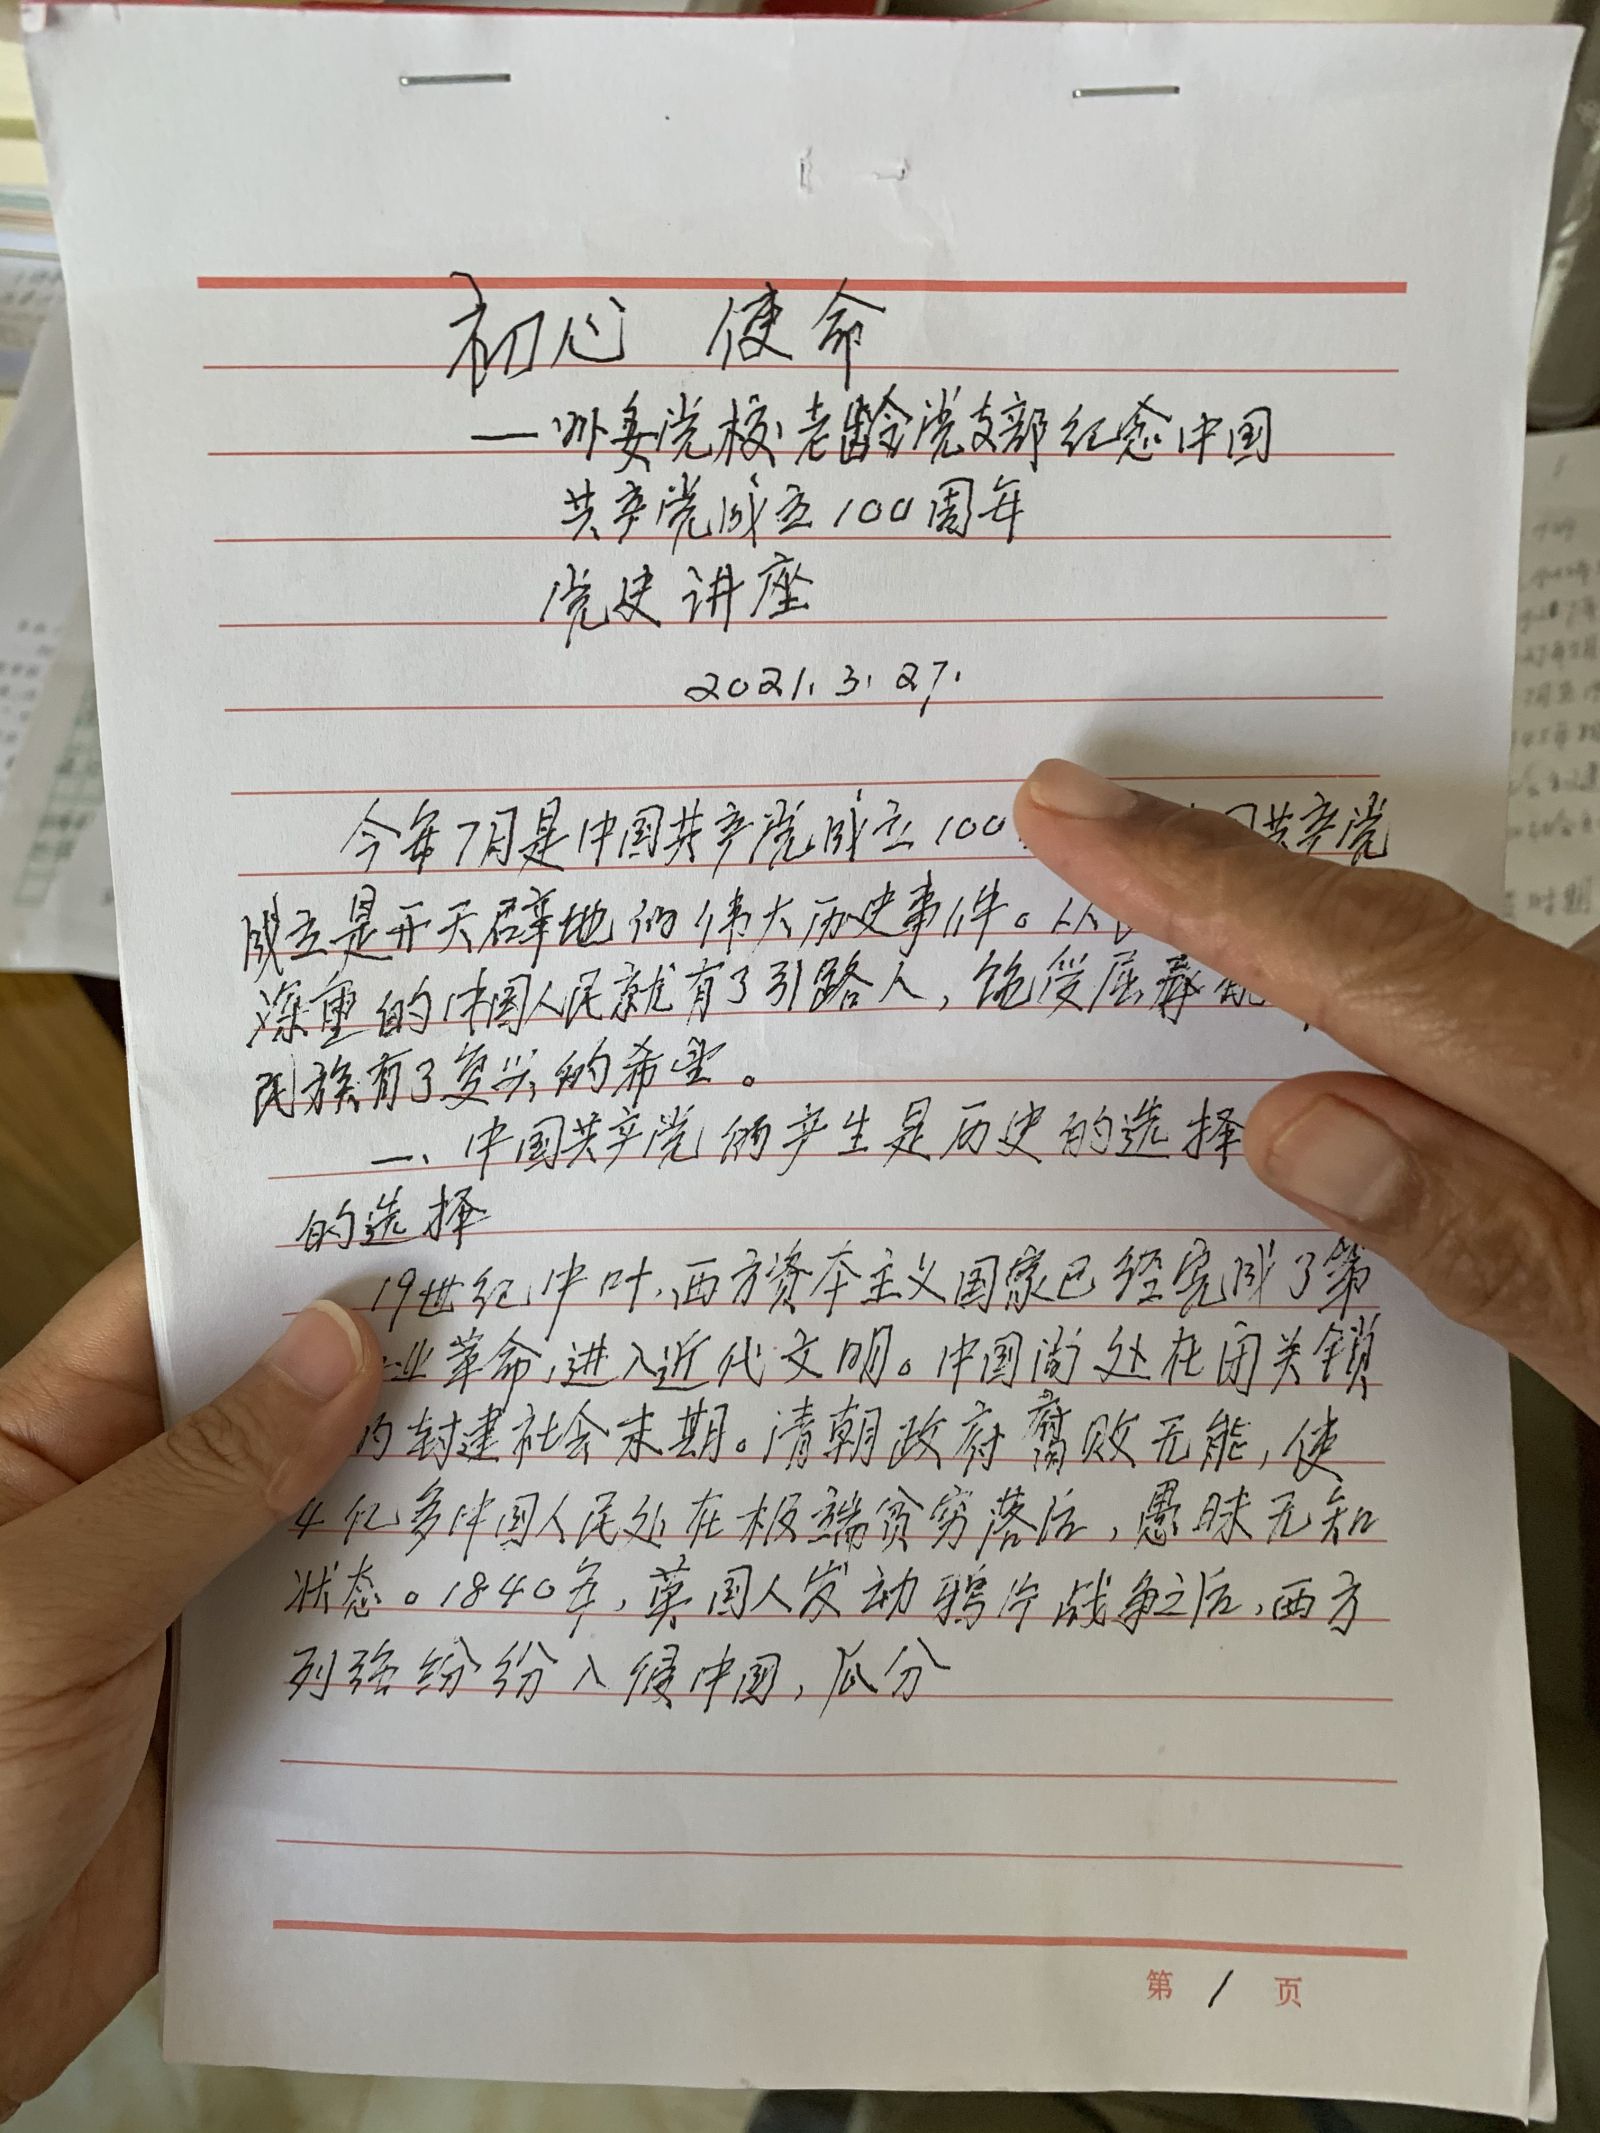 初心 使命
—州委党校老龄党支部纪念中国
共产党成立100周年
党史讲座
2021.3.27.
今年7月是中国共产党成立100 国共产党
成立是开天辟地的伟大历史事件。从
深重的中国人民就有了引路人，饱受屈辱
民族有了复兴的希望。
一、中国共产党的产生是历史的选择
的选择
19世纪中叶，西方资本主义国家已经完成了第
业革命，进入近代文明。中国尚处在闭关锁
的封建社会末期。清朝政府腐败无能，使
4亿多中国人民处在极端贫穷落后，愚昧无知
状态。1840年，英国人发动鸦片战争之后，西方
列强纷纷入侵中国，瓜分
第 1 页